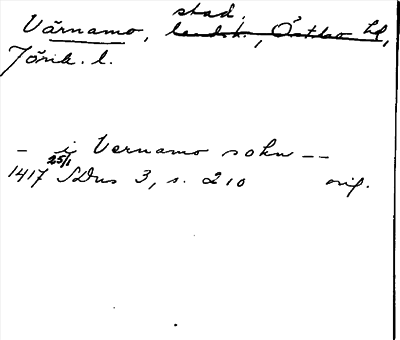 stad.
Värnamo, landsk., Östbo hd,
Jönk. l.
– i Vernamo sokn – –
25/1
1417 SDns 3, s. 210 orig.